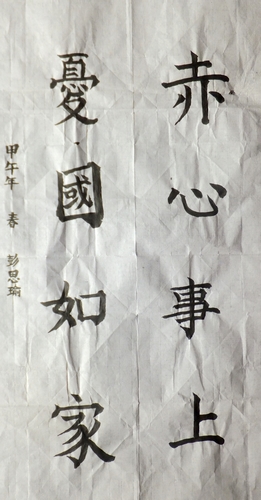 赤心事上
憂國如家
甲午年 春 彭思瑜